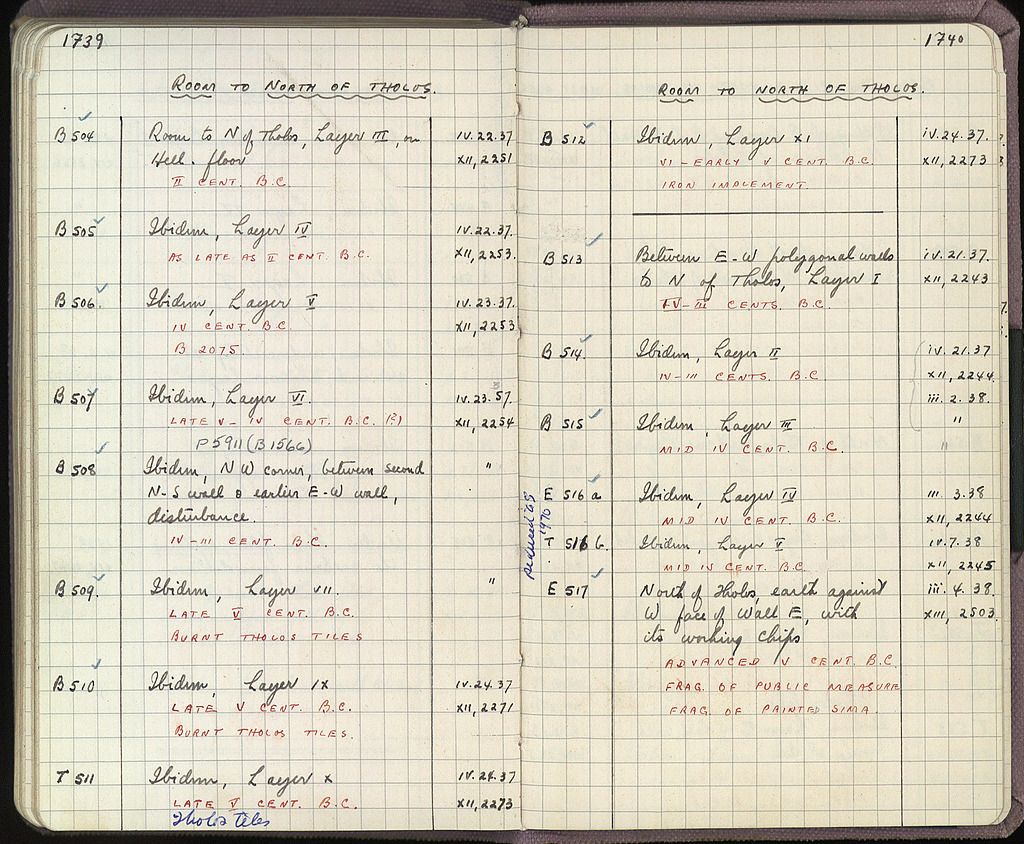 1739
ROOM TO NORTH OF THOLOS.
B 504 Room to N of Tholos, Layer III, on IV.22.37
Hell. floor XII, 2251
II CENT. B.C.
B 505 Ibidem, Layer IV IV.22.37.
AS LATE AS II CENT. B.C. XII, 2253.
B 506 Ibidem, Layer V IV.23.37.
IV CENT. B.C. XII, 2253
B 2075.
B 507 Ibidem, Layer VI. IV.23.37.
LATE V - IV CENT. B.C. (?) XII, 2254
P5911 (B1566)
B 508 Ibidem, NW corner, between second "
N-S wall & earlier E-W wall,
disturbance.
IV-III CENT. B.C.
B 509 Ibidem, Layer VII. "
LATE V CENT. B.C.
BURNT THOLOS TILES
B 510 Ibidem, Layer IX IV.24.37
LATE V CENT. B.C. XII, 2271
BURNT THOLOS TILES.
T 511 Ibidem, Layer X IV.24.37
LATE V CENT. B.C. XII, 2273
Tholos tiles
1740
ROOM TO NORTH OF THOLOS.
B 512 Ibidem, Layer XI IV.24.37.
VI - EARLY V CENT. B.C. XII, 2273
IRON IMPLEMENT.
B 513 Between E-W polygonal walls IV.21.37.
to N of Tholos, Layer I XII, 2243
IV-III CENTS. B.C.
B 514 Ibidem, Layer II IV.21.37
IV-III CENTS. B.C XII, 2244
iii.2.38.
B 515 Ibidem, Layer III "
MID IV CENT. B.C. "
E 516 a Ibidem, Layer IV III.3.38
MID IV CENT. B.C. XII, 2244
T 516 b. Ibidem, Layer V IV.7.38
MID IV CENT. B.C. XII, 2245
reduced '65
1970
E 517 North of Tholos, earth against iii.4.38.
W face of Wall E, with XIII, 2503.
its working chips
ADVANCED IV CENT. B.C.
FRAG. OF PUBLIC MEASURE
FRAG. OF PAINTED SIMA.